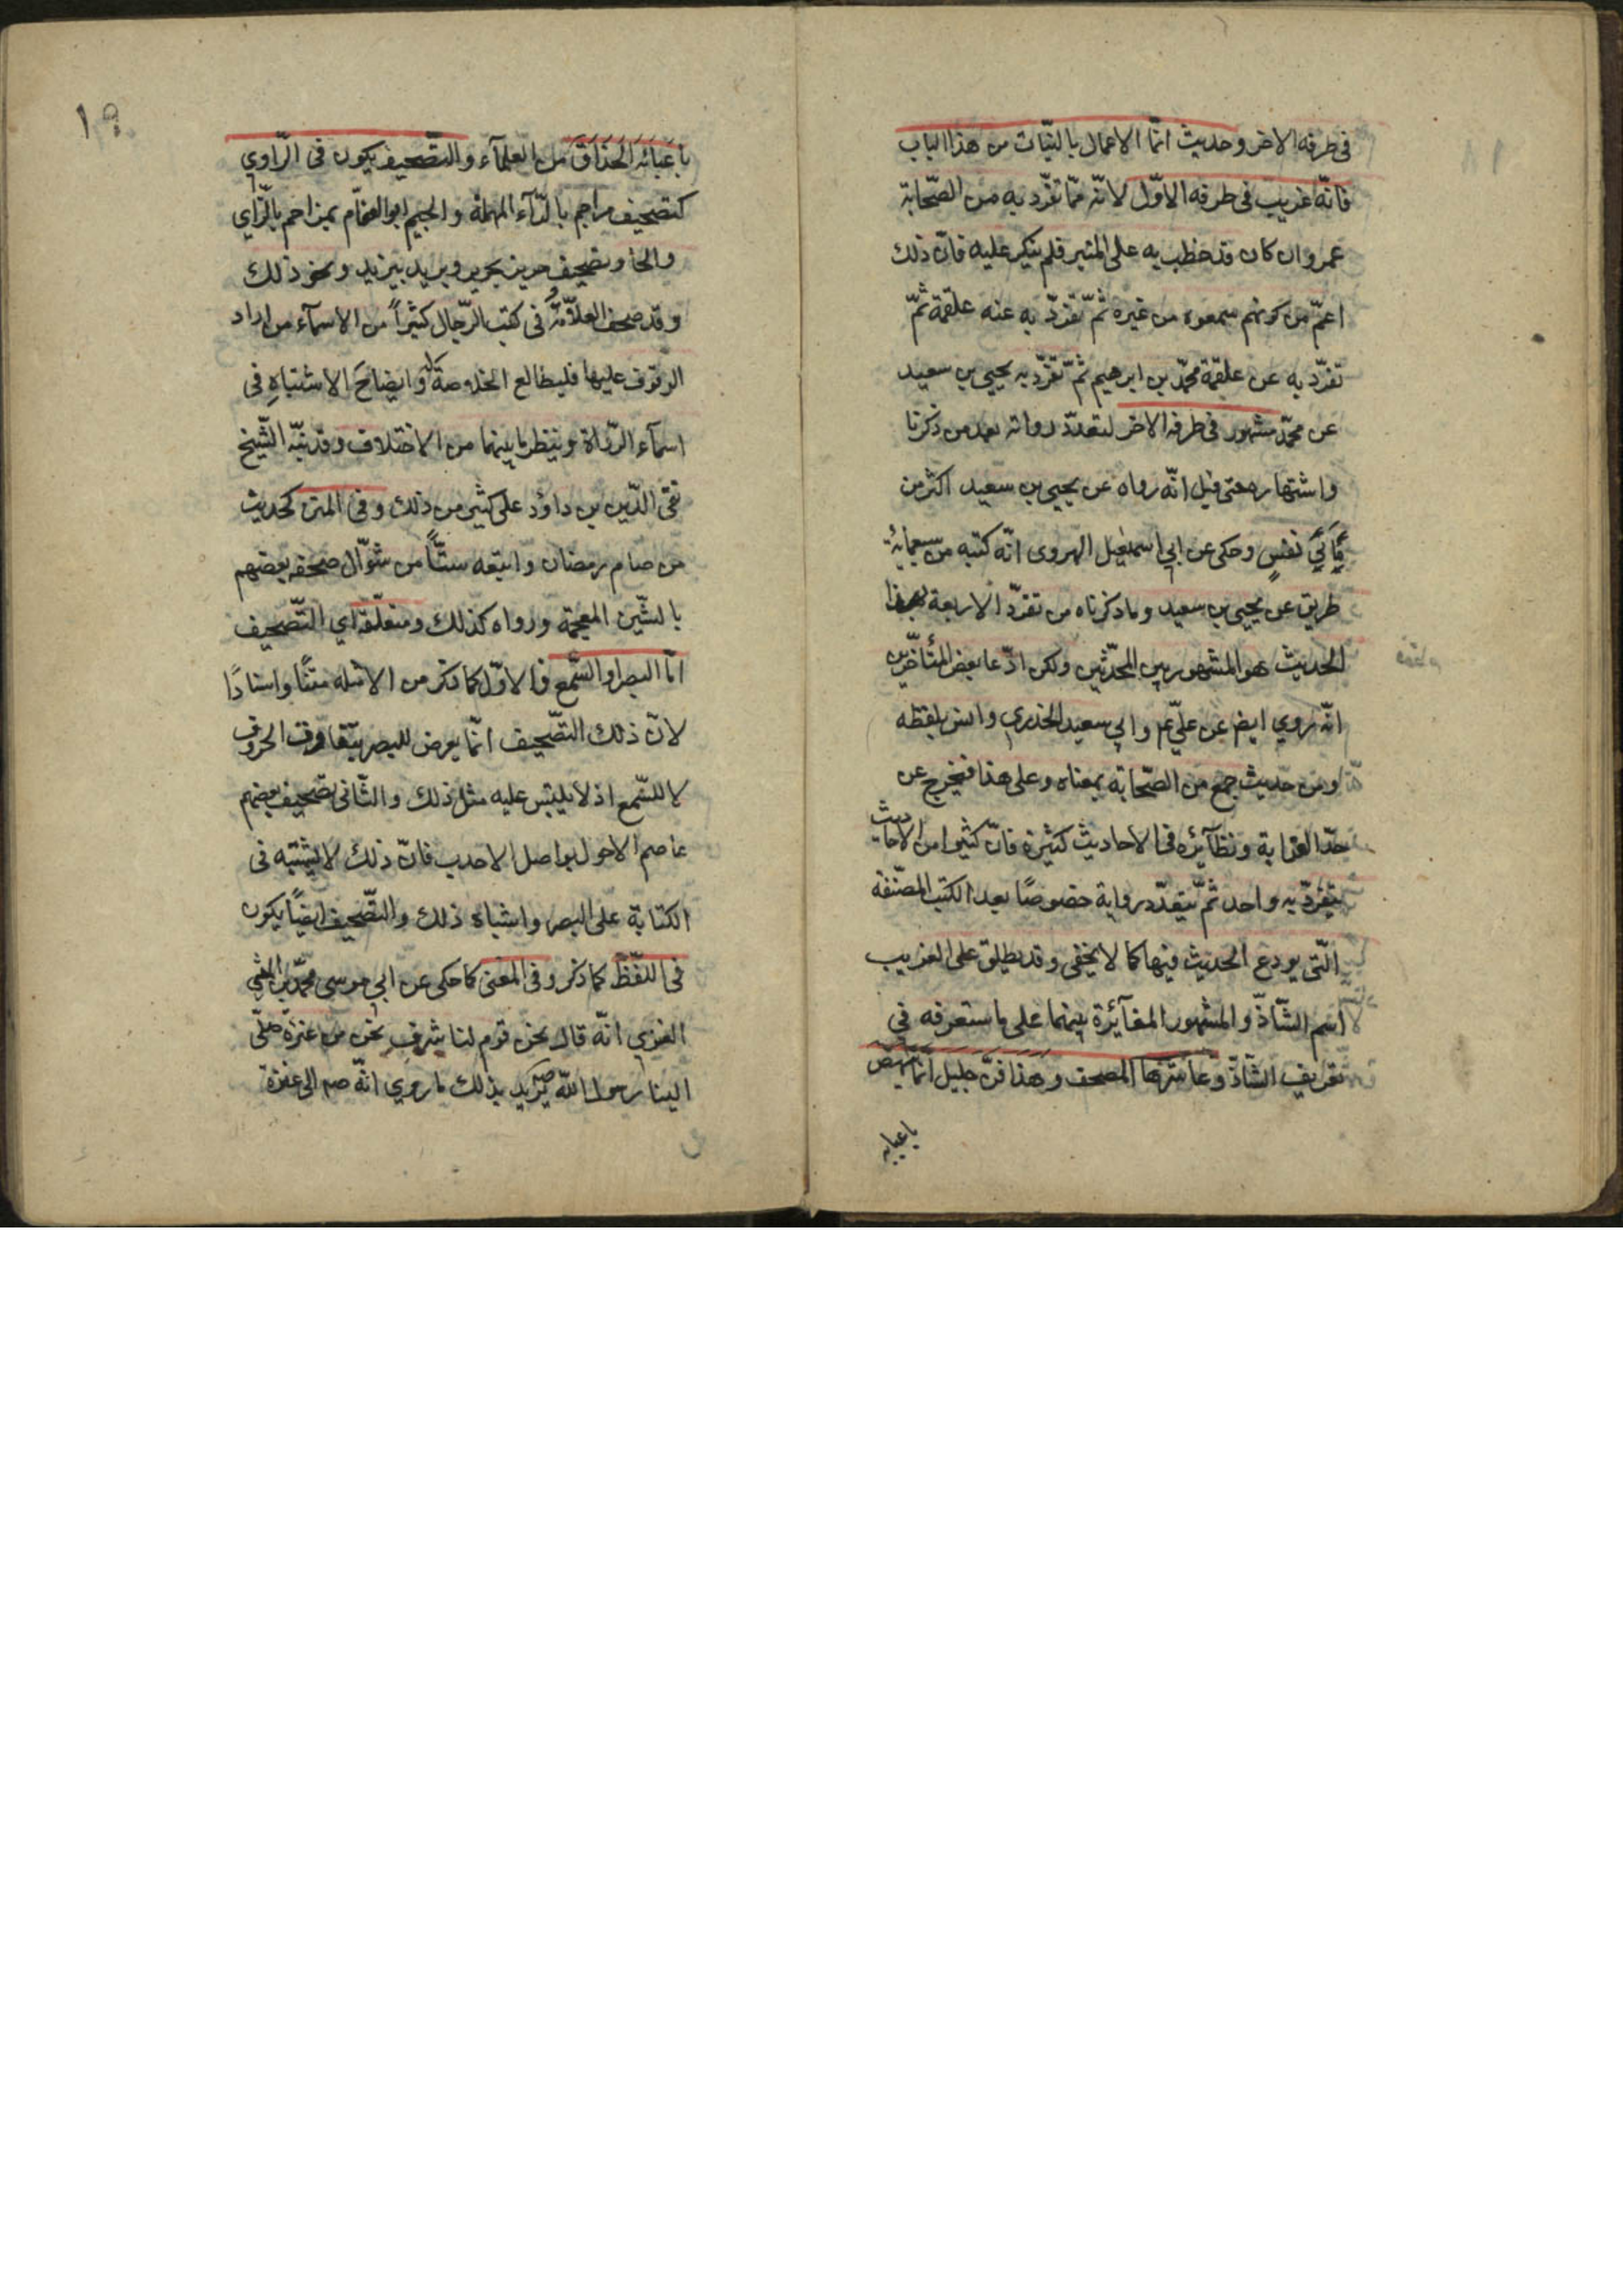 في طرفه الاخر وحديث انّما الاعمال بالنيّات من هذا الباب
فانّه غريب في طرفه الاوّل لانّه ممّا تفرّد به من الصّحابة
عمر وان كان قد خطب به على المنبر فلم ينكر عليه فانّ ذلك
اعمّ من كونهم سمعوه من غيره ثمّ تفرّد به عنه علقمة ثمّ
تفرّد به عن علقمة محمّد بن ابرهيم ثمّ تفرّد به يحيى بن سعيد
عن محمّد مشهور في طرفه الاخر لتعدّد رواته بعد من ذكرنا
واشتهاره حتى قيل انّه رواه عن يحيى بن سعيد اكثر من
مأتي نفس وحكى عن ابي اسمعيل الهروى انّه كتبه من سبعمائة
طريق عن يحيى بن سعيد وما ذكرناه من تفرّد الاربعة بهذا
الحديث هو المشهور بين المحدّثين ولكن ادّعا بعض المتأخّرين
انّه روي ايض عن عليّ ع م وابي سعيد الخدري وانس بلفظه
ومن حديث جمع من الصّحابة بمعناه وعلى هذا فيخرج عن
حدّ الغرابة ونظآئره في الاحاديث كثيرة فانّ كثيرا من الاحاديث
يتفرّد به واحد ثمّ يتعدّد رواية خصوصًا بعد الكتب المصنّفة
الّتي يودع الحديث فيها كما لا يخفى وقد يطلق على الغريب
اسم الشّاذّ والمشهور المغآئرة بينهما على ما ستعرفه في
تعريف الشّاذّ وعاشرها المصحف وهذا فنّ جليل انّما ينهض
باعبائه
١٩
باعبائه الحذاق من العلمآء والتّصحيف يكون في الرّاوي
كتصحيف مراجم بالرّآء المهملة والجيم ابو العوّام بمزاحم بالزّاي
والحا وتصحيف حريز بجرير وبريد بيزيد ونحو ذلك
وقد صحف العلّامة في كتب الرّجال كثيرًا من الاسمآء من اراد
الوقوف عليها فليطالع الخلاصة له وايضاح الاشتباه في
اسمآء الرّواة وينظر ما بينهما من الاختلاف وقد نبّه الشّيخ
تقي الدّين بن داؤد على كثير من ذلك وفي المتن كحديث
من صام رمضان واتبعه ستّاً من شوّال صحفه بعضهم
بالشّين المعجمة ورواه كذلك ومتعلّقه اي التّصحيف
امّا البصر او السّمع والاوّل كما ذكر من الامثله متنًا واسنادًا
لانّ ذلك التّصحيف انّما يعرض للبصر بتقارب الحروف
لا للسّمع اذ لا يلتبس عليه مثل ذلك والثّاني تصحيف بعضهم
عاصم الاحول بواصل الاحدب فانّ ذلك لا يشتبه في
الكتابة على البصر واشباه ذلك والتّصحيف ايضًا يكون
في اللّفظ كما ذكر وفي المعنى كما حكى عن ابي موسى محمّد بن المثنى
العنزي انّه قال نحن قوم لنا شرف نحن من عنزة صلّى
الينا رسول الله ص يريد بذلك ما روي انّه صم الى عنزة